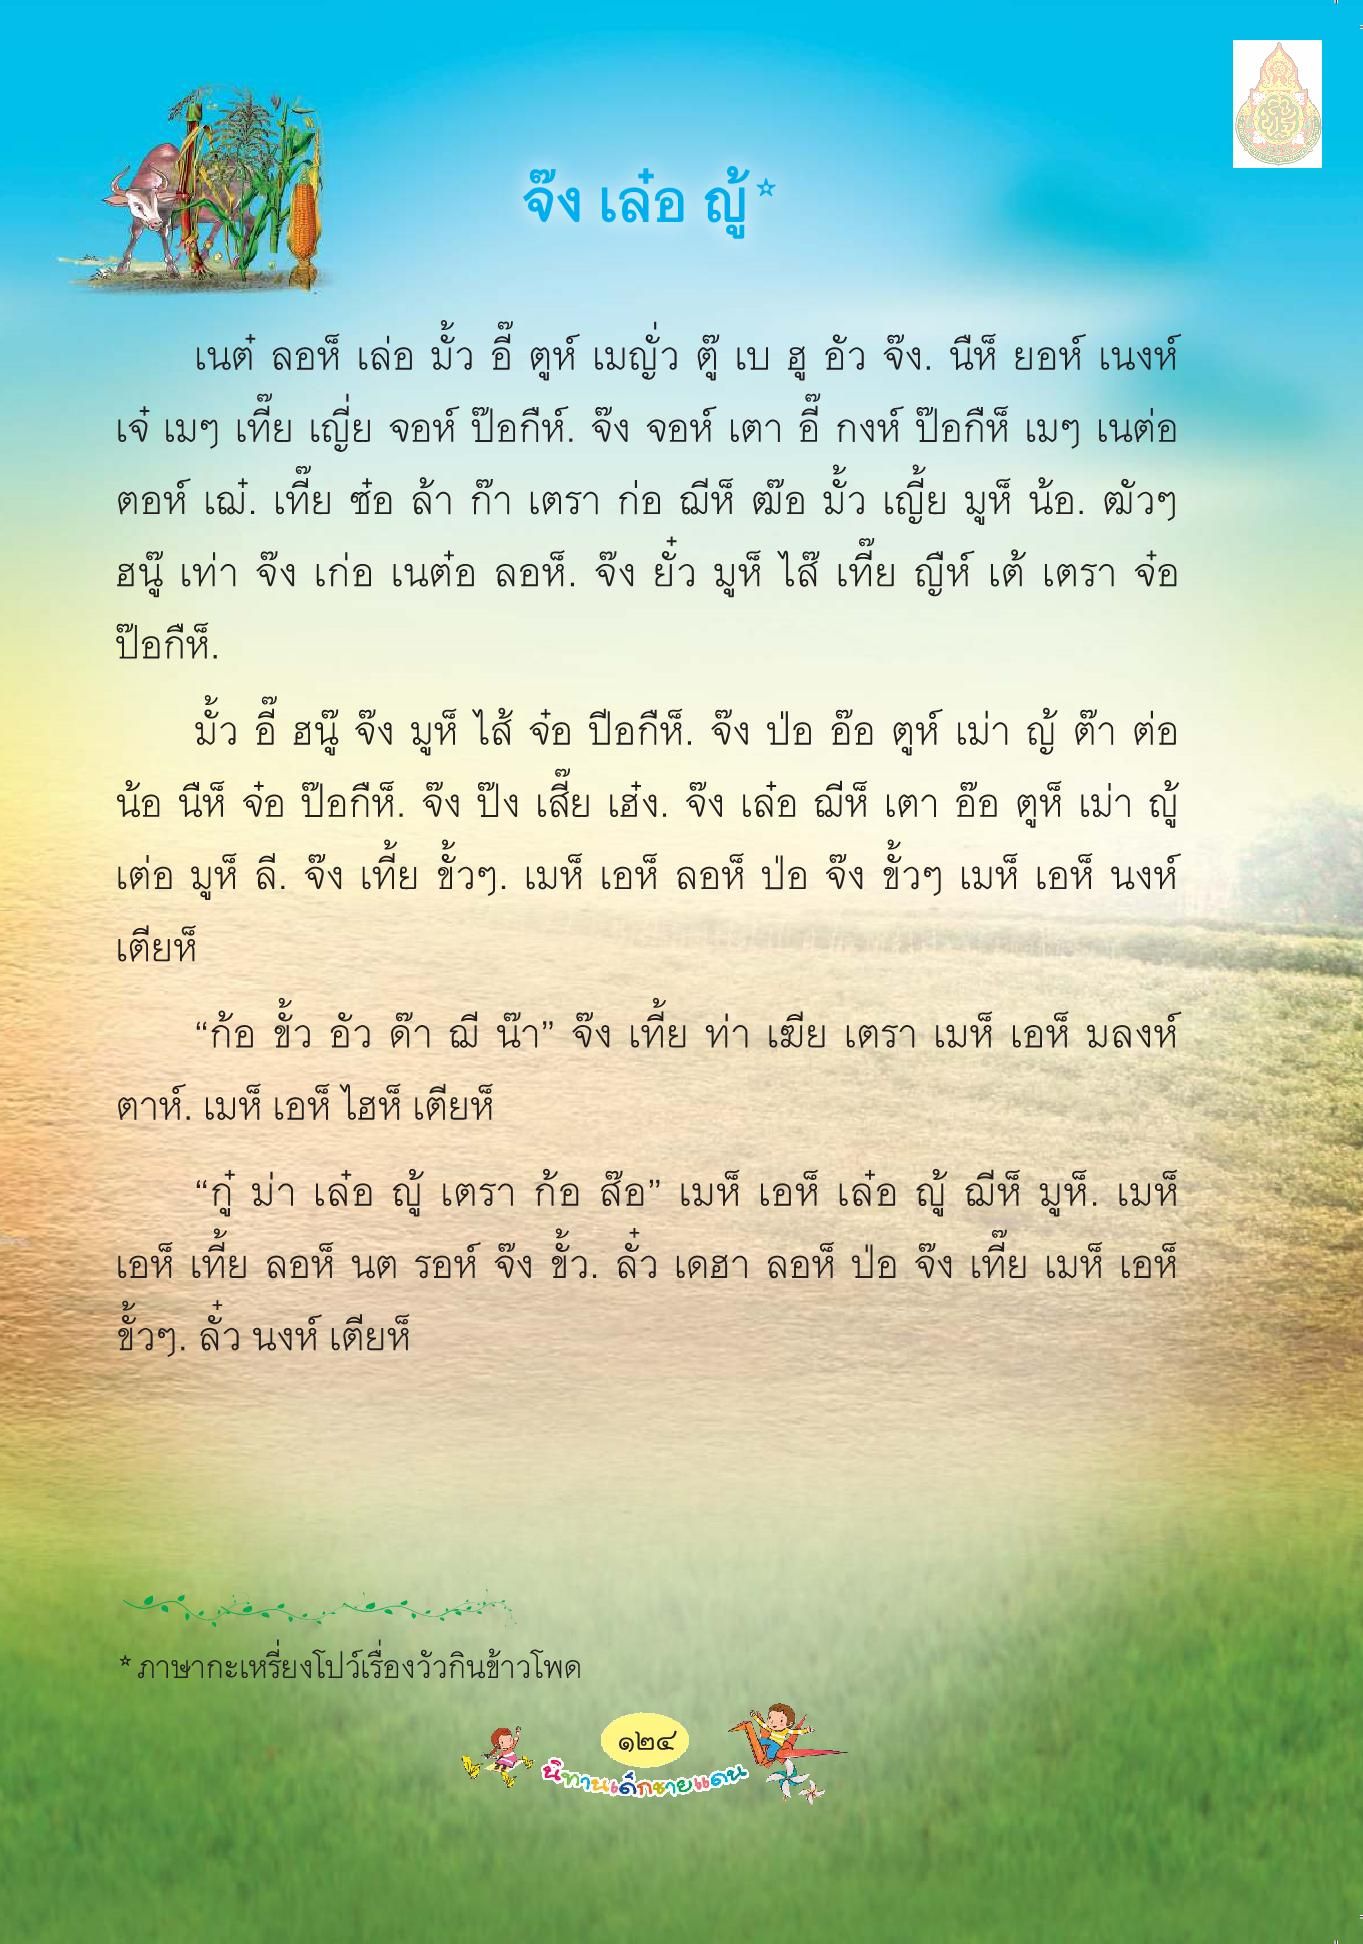 จ๊ง เล๋อ ญู้*
เนต๋ ลอห็ เล่อ มั้ว อี๊ ตูห์ เมญั่ว ตู๊ เบ ฮู อัว จ๊ง. นืห็ ยอห์ เนงห์
เจ๋ เมๆ เที๊ย เญี่ย จอห์ ป๊อกืห์. จ๊ง จอห์ เตา อี๊ กงห์ ป๊อกืห็ เมๆ เนต่อ
ตอห์ เฌ๋. เที๊ย ซ๋อ ล้า ก๊า เตรา ก่อ ฌีห็ ฒ๊อ มั้ว เญี้ย มูห็ น้อ. ฒัวๆ
ฮนู๊ เท่า จ๊ง เก่อ เนต๋อ ลอห็. จ๊ง ยั๋ว มูห็ ไส๊ เที๊ย ญืห์ เต้ เตรา จ๋อ
ป๊อกืห็.
มั้ว อี๊ ฮนู๊ จ๊ง มูห็ ไส้ จ๋อ ปีอกืห็. จ๊ง ป่อ อ๊อ ตูห์ เม่า ญู้ ต๊า ต่อ
น้อ นืห็ จ๋อ ป๊อกืห็. จ๊ง ป๊ง เสี๊ย เฮ๋ง. จ๊ง เล๋อ ฌีห็ เตา อ๊อ ตูห็ เม่า ญู้
เต่อ มูห็ ลี. จ๊ง เที้ย ขั้วๆ. เมห็ เอห็ ลอห็ ป่อ จ๊ง ขั้วๆ เมห็ เอห็ นงห์
เตียห็
“ก้อ ขั้ว อัว ด๊า ฌี น๊า” จ๊ง เที้ย ท่า เฆีย เตรา เมห็ เอห็ มลงห์
ตาห์. เมห็ เอห็ ไฮห็ เตียห็
“กู๋ ม่า เล๋อ ญู้ เตรา ก้อ ส๊อ” เมห็ เอห็ เล๋อ ญู้ ฌีห็ มูห็. เมห็
เอห็ เที้ย ลอห็ นต รอห์ จ๊ง ขั้ว. ลั๋ว เดฮา ลอห็ ป่อ จ๊ง เที๊ย เมห็ เอห็
ขั้วๆ. ลั๋ว นงห์ เตียห็
* ภาษากะเหรี่ยงโปว์เรื่องวัวกินข้าวโพด
๑๒๔
นิทานเด็กชายแดน